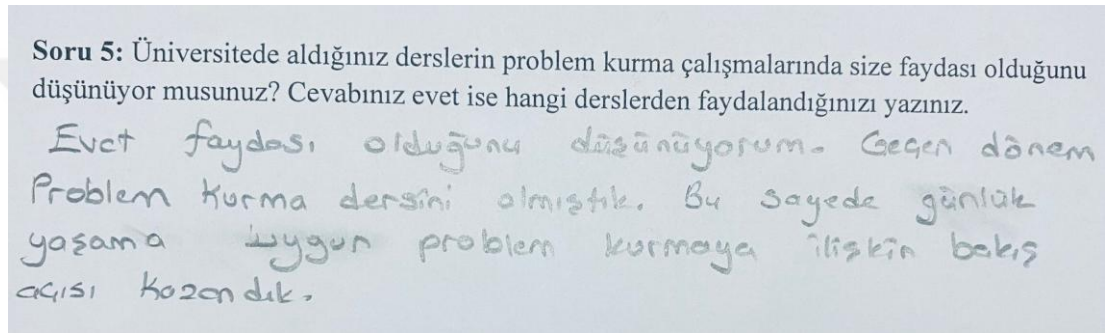 Soru 5: Üniversitede aldığınız derslerin problem kurma çalışmalarında size faydası olduğunu
düşünüyor musunuz? Cevabınız evet ise hangi derslerden faydalandığınızı yazınız.
Evet faydası olduğunu düşünüyorum. Geçen dönem
Problem Kurma dersini almıştık. Bu sayede günlük
yaşama uygun problem kurmaya ilişkin bakış
açısı kazandık.